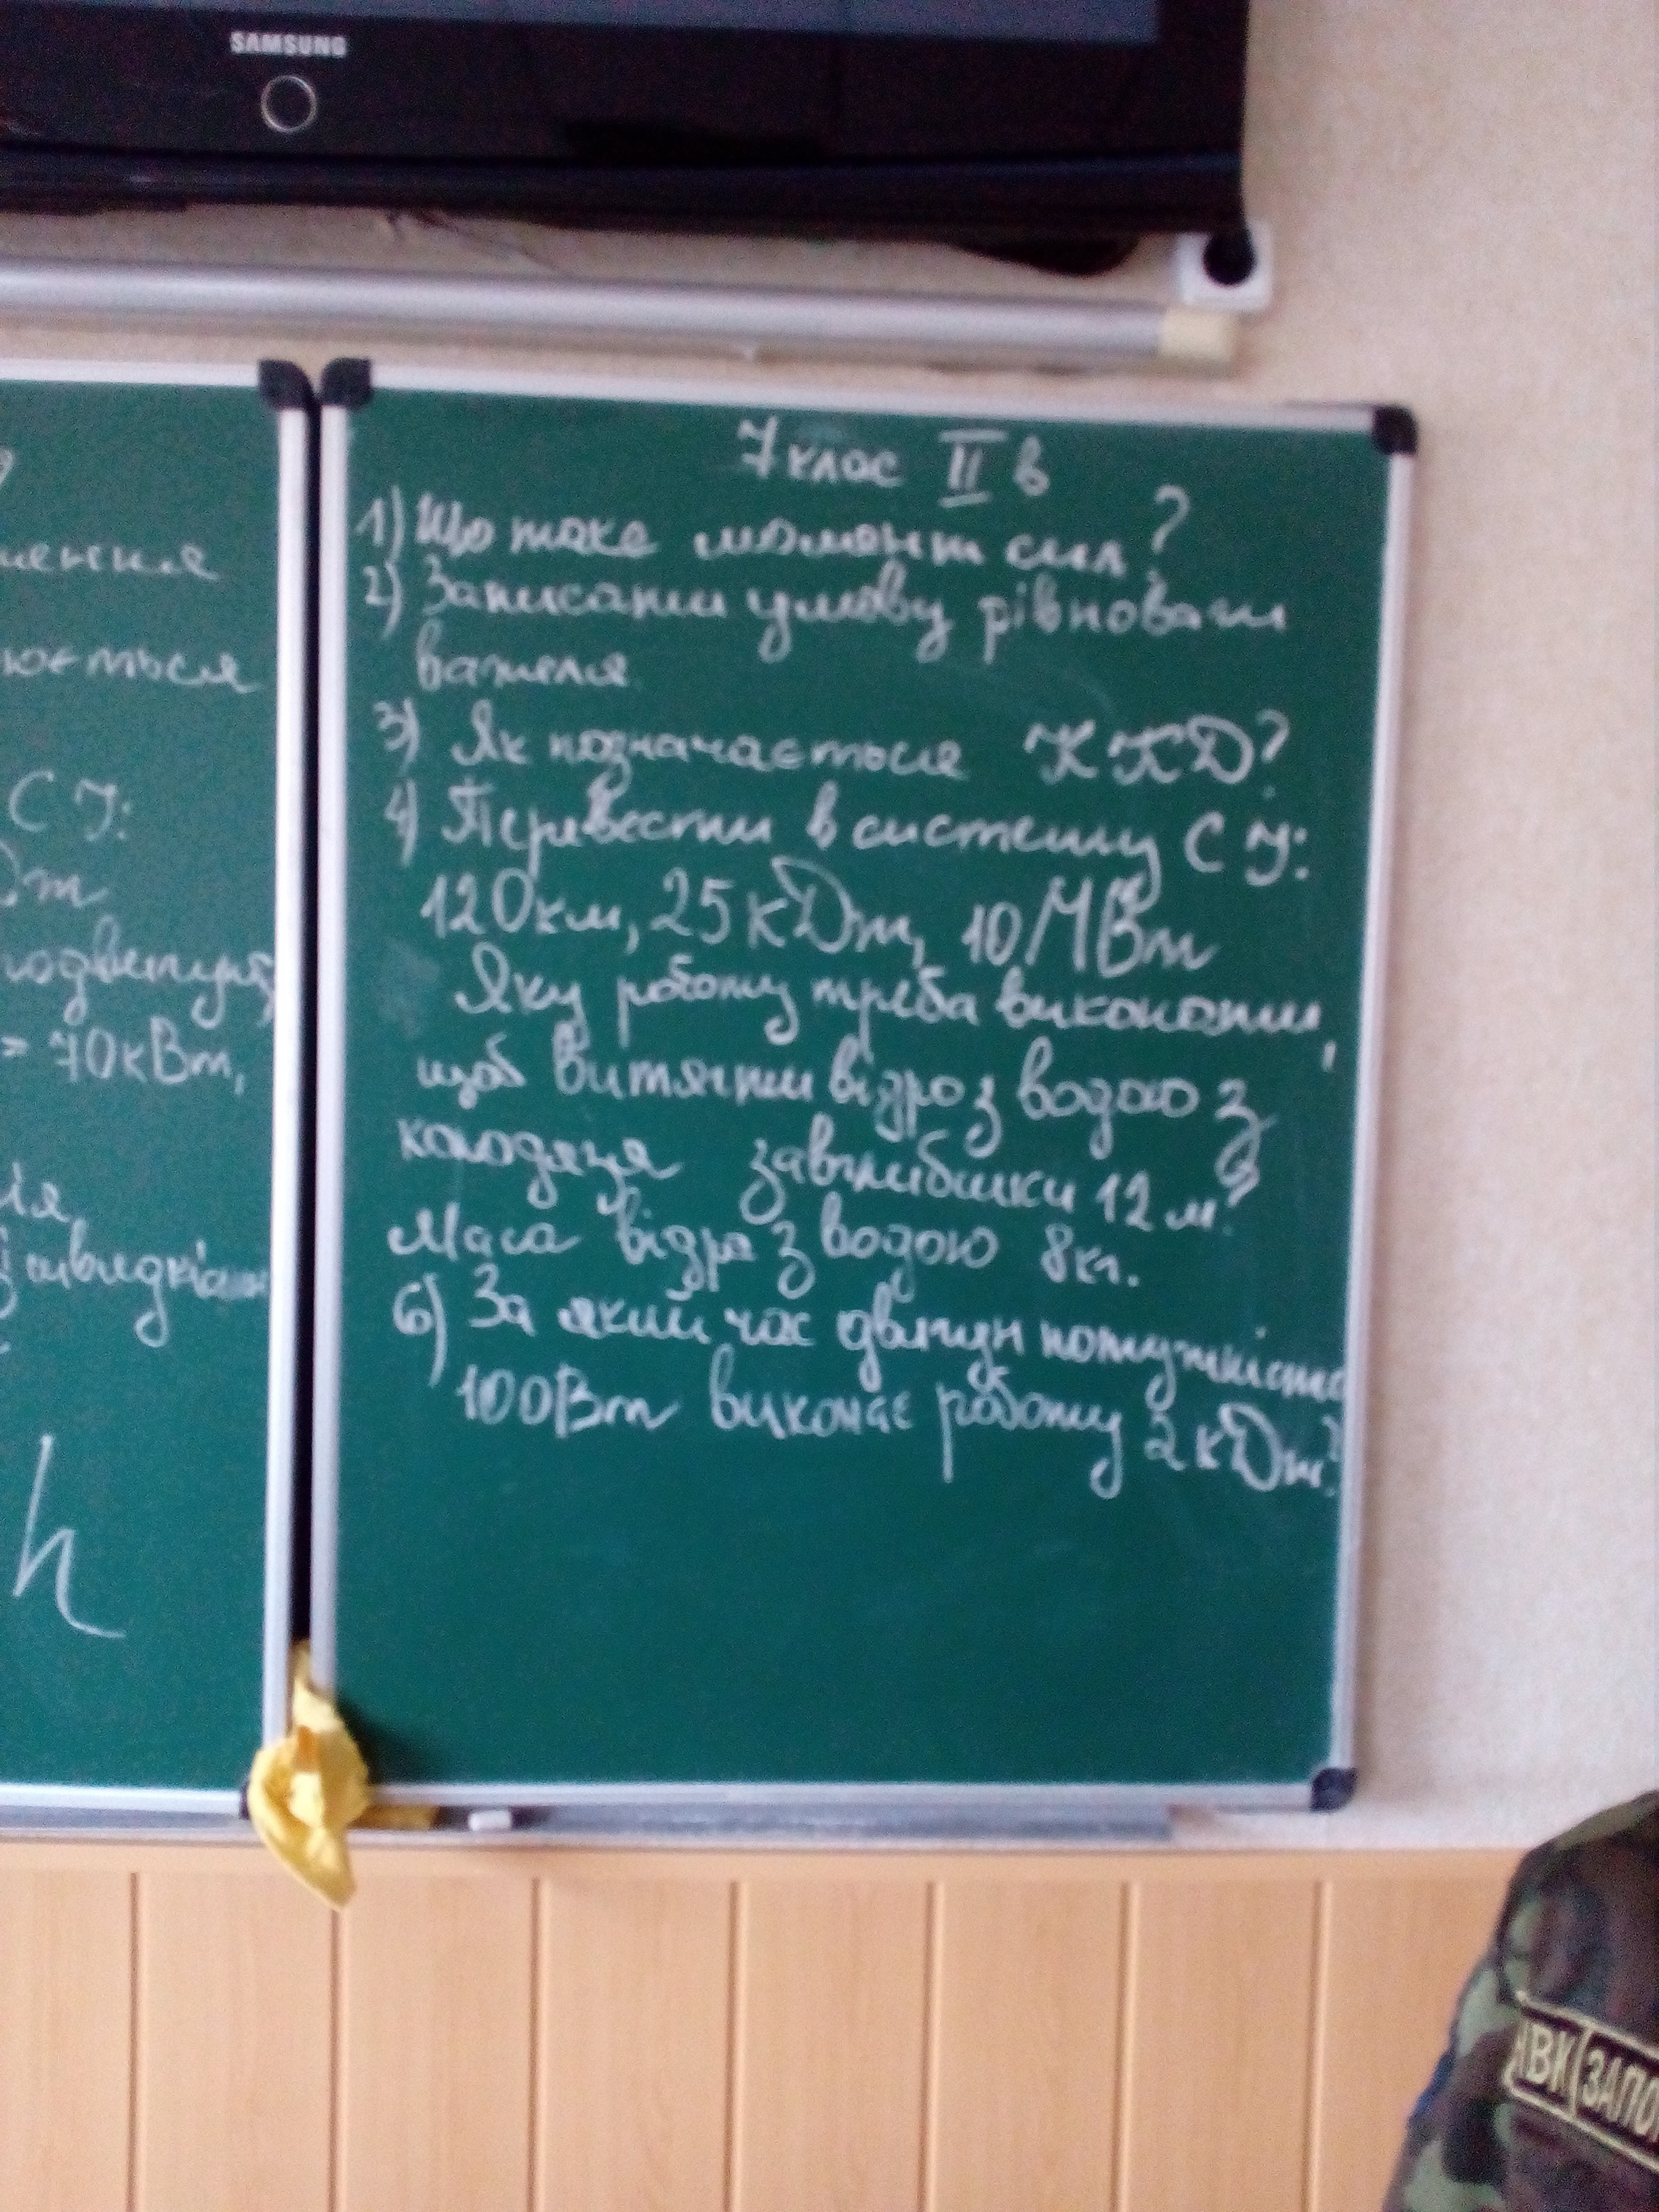 SAMSUNG
СУ:
= 70кВт,
h
7 клас II в
1) Що таке момент сил?
2) Записати умову рівноваги
важеля
3) Як позначається ККД?
4) Перевести в систему СУ:
120км, 25кДж, 10МВт
Яку роботу треба виконати,
щоб витягти відро з водою з
колодязя завглибшки 12 м?
Маса відра з водою 8кг.
6) За який час двигун потужністю
100Вт виконає роботу 2кДж?
НВК ЗАПО